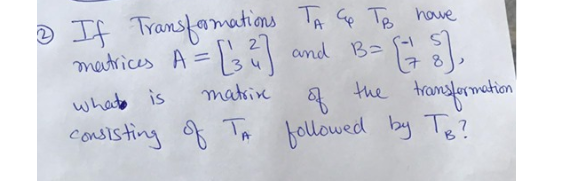 ② If Transformations T_A & T_B have
matrices A = [1 2; 3 4] and B = [-1 5; 7 8],
what is matrix of the transformation
consisting of T_A followed by T_B?